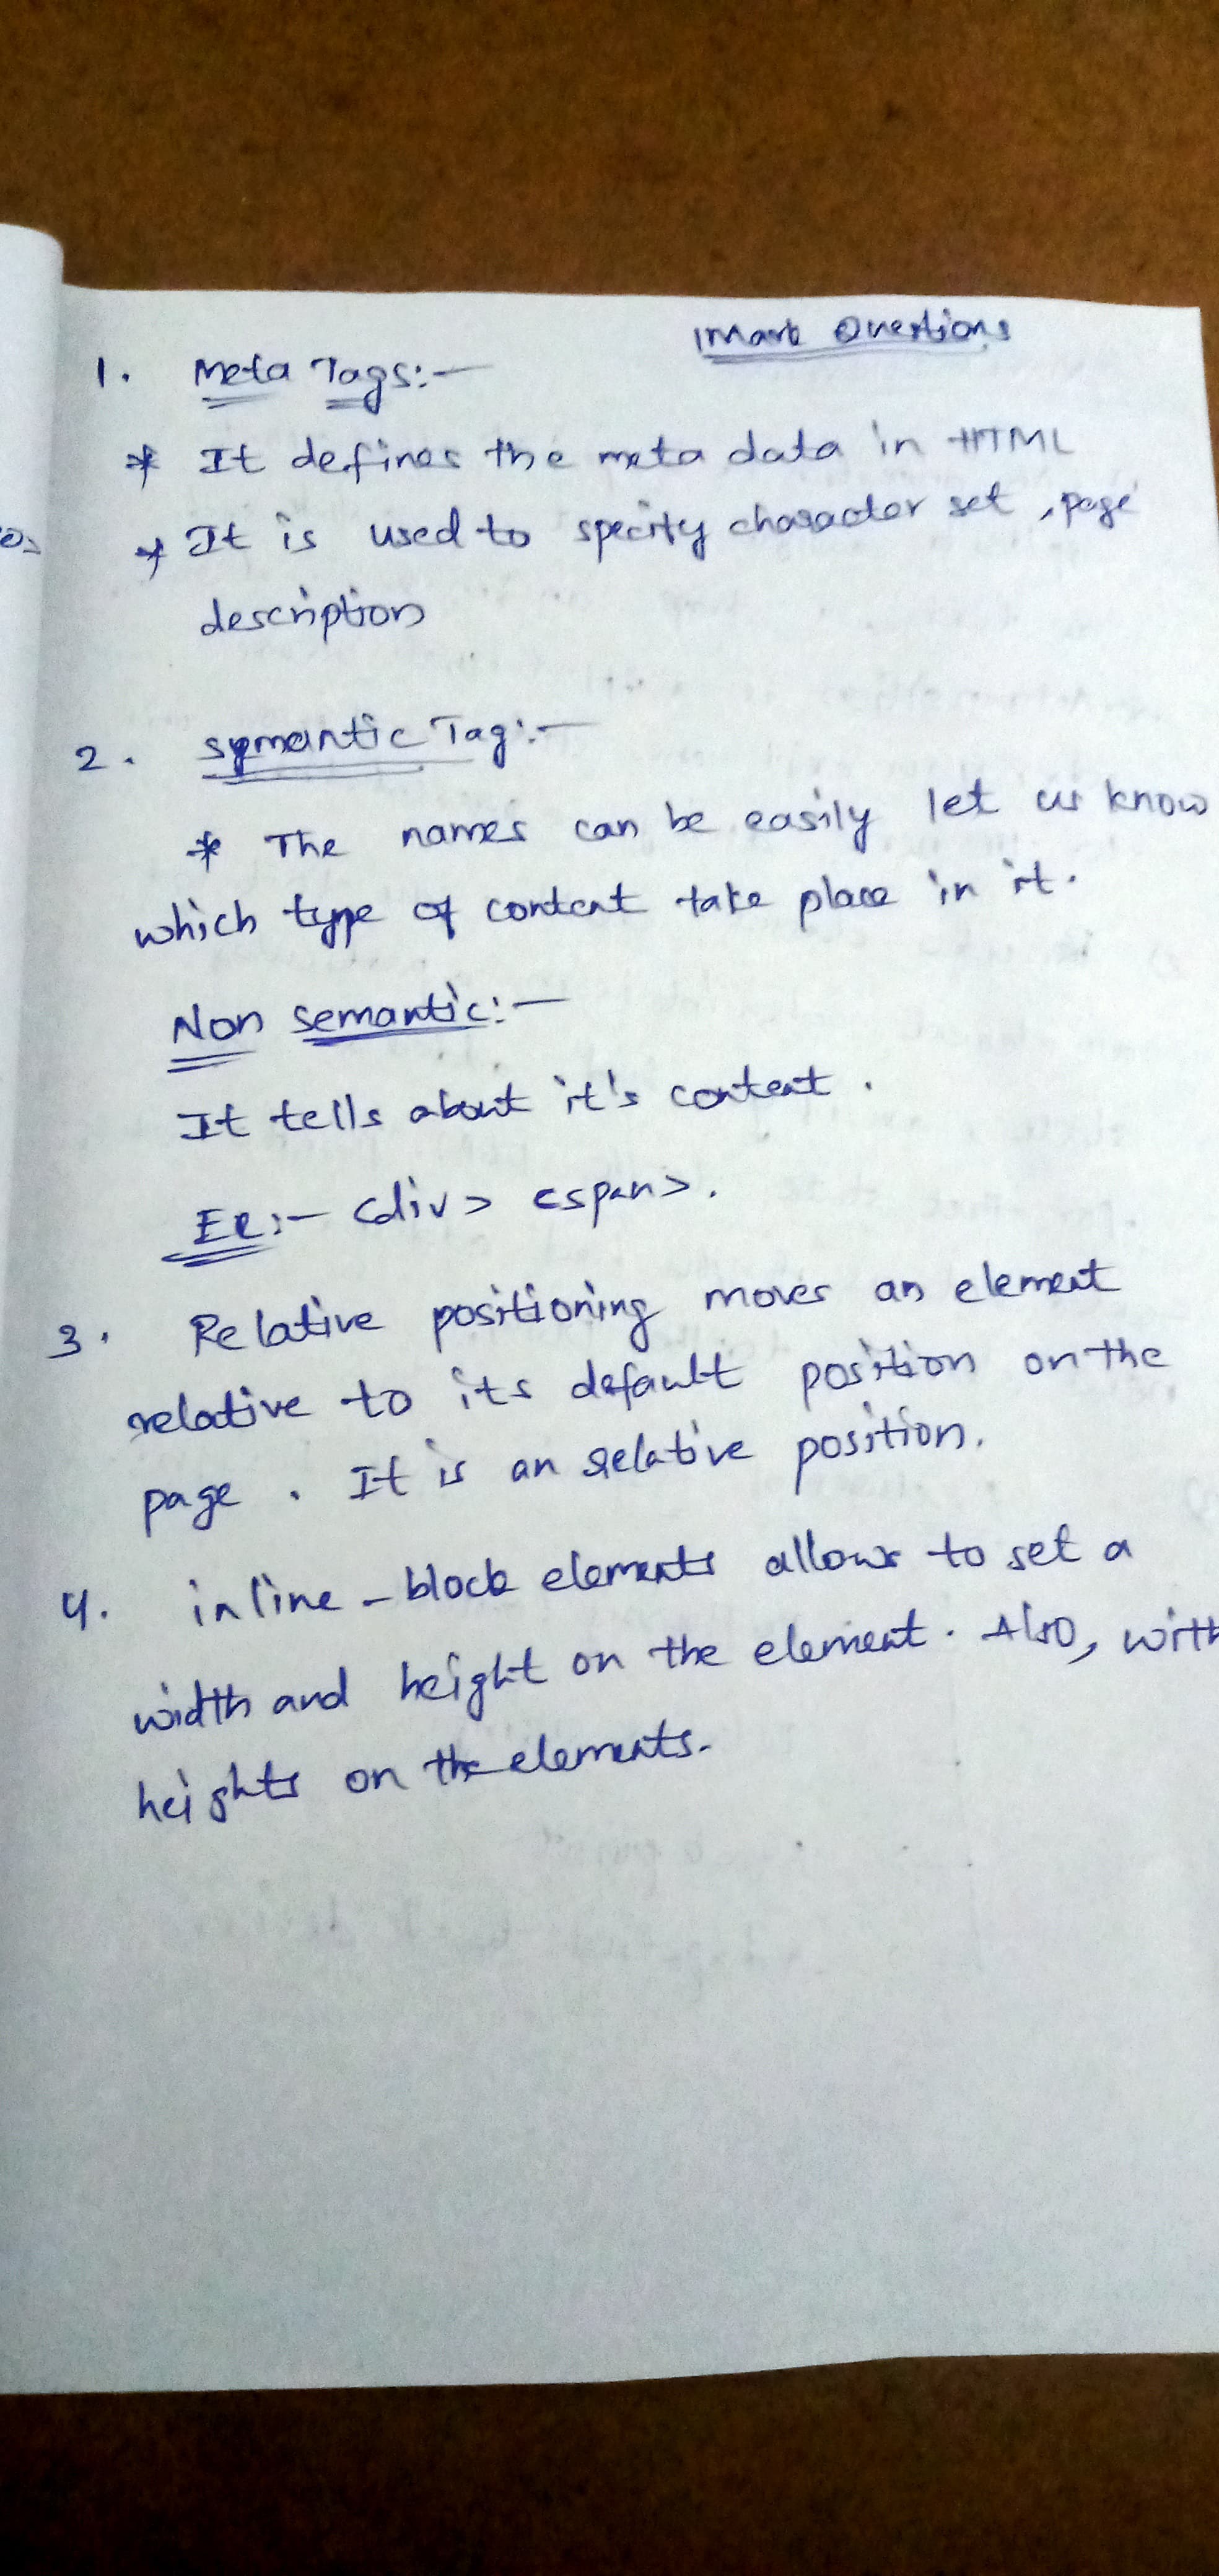 1Mark Questions
1. Meta Tags:-
* It defines the meta data in HTML
* It is used to specify character set, page
description
2. symantic Tag:-
* The names can be easily let us know
which type of content take place in it.
Non semantic:-
It tells about it's content.
Ex:- <div> <span>.
3. Relative positioning moves an element
relative to its default position on the
page. It is an relative position.
4. inline-block elements allows to set a
width and height on the element. Also, with
heights on the elements.